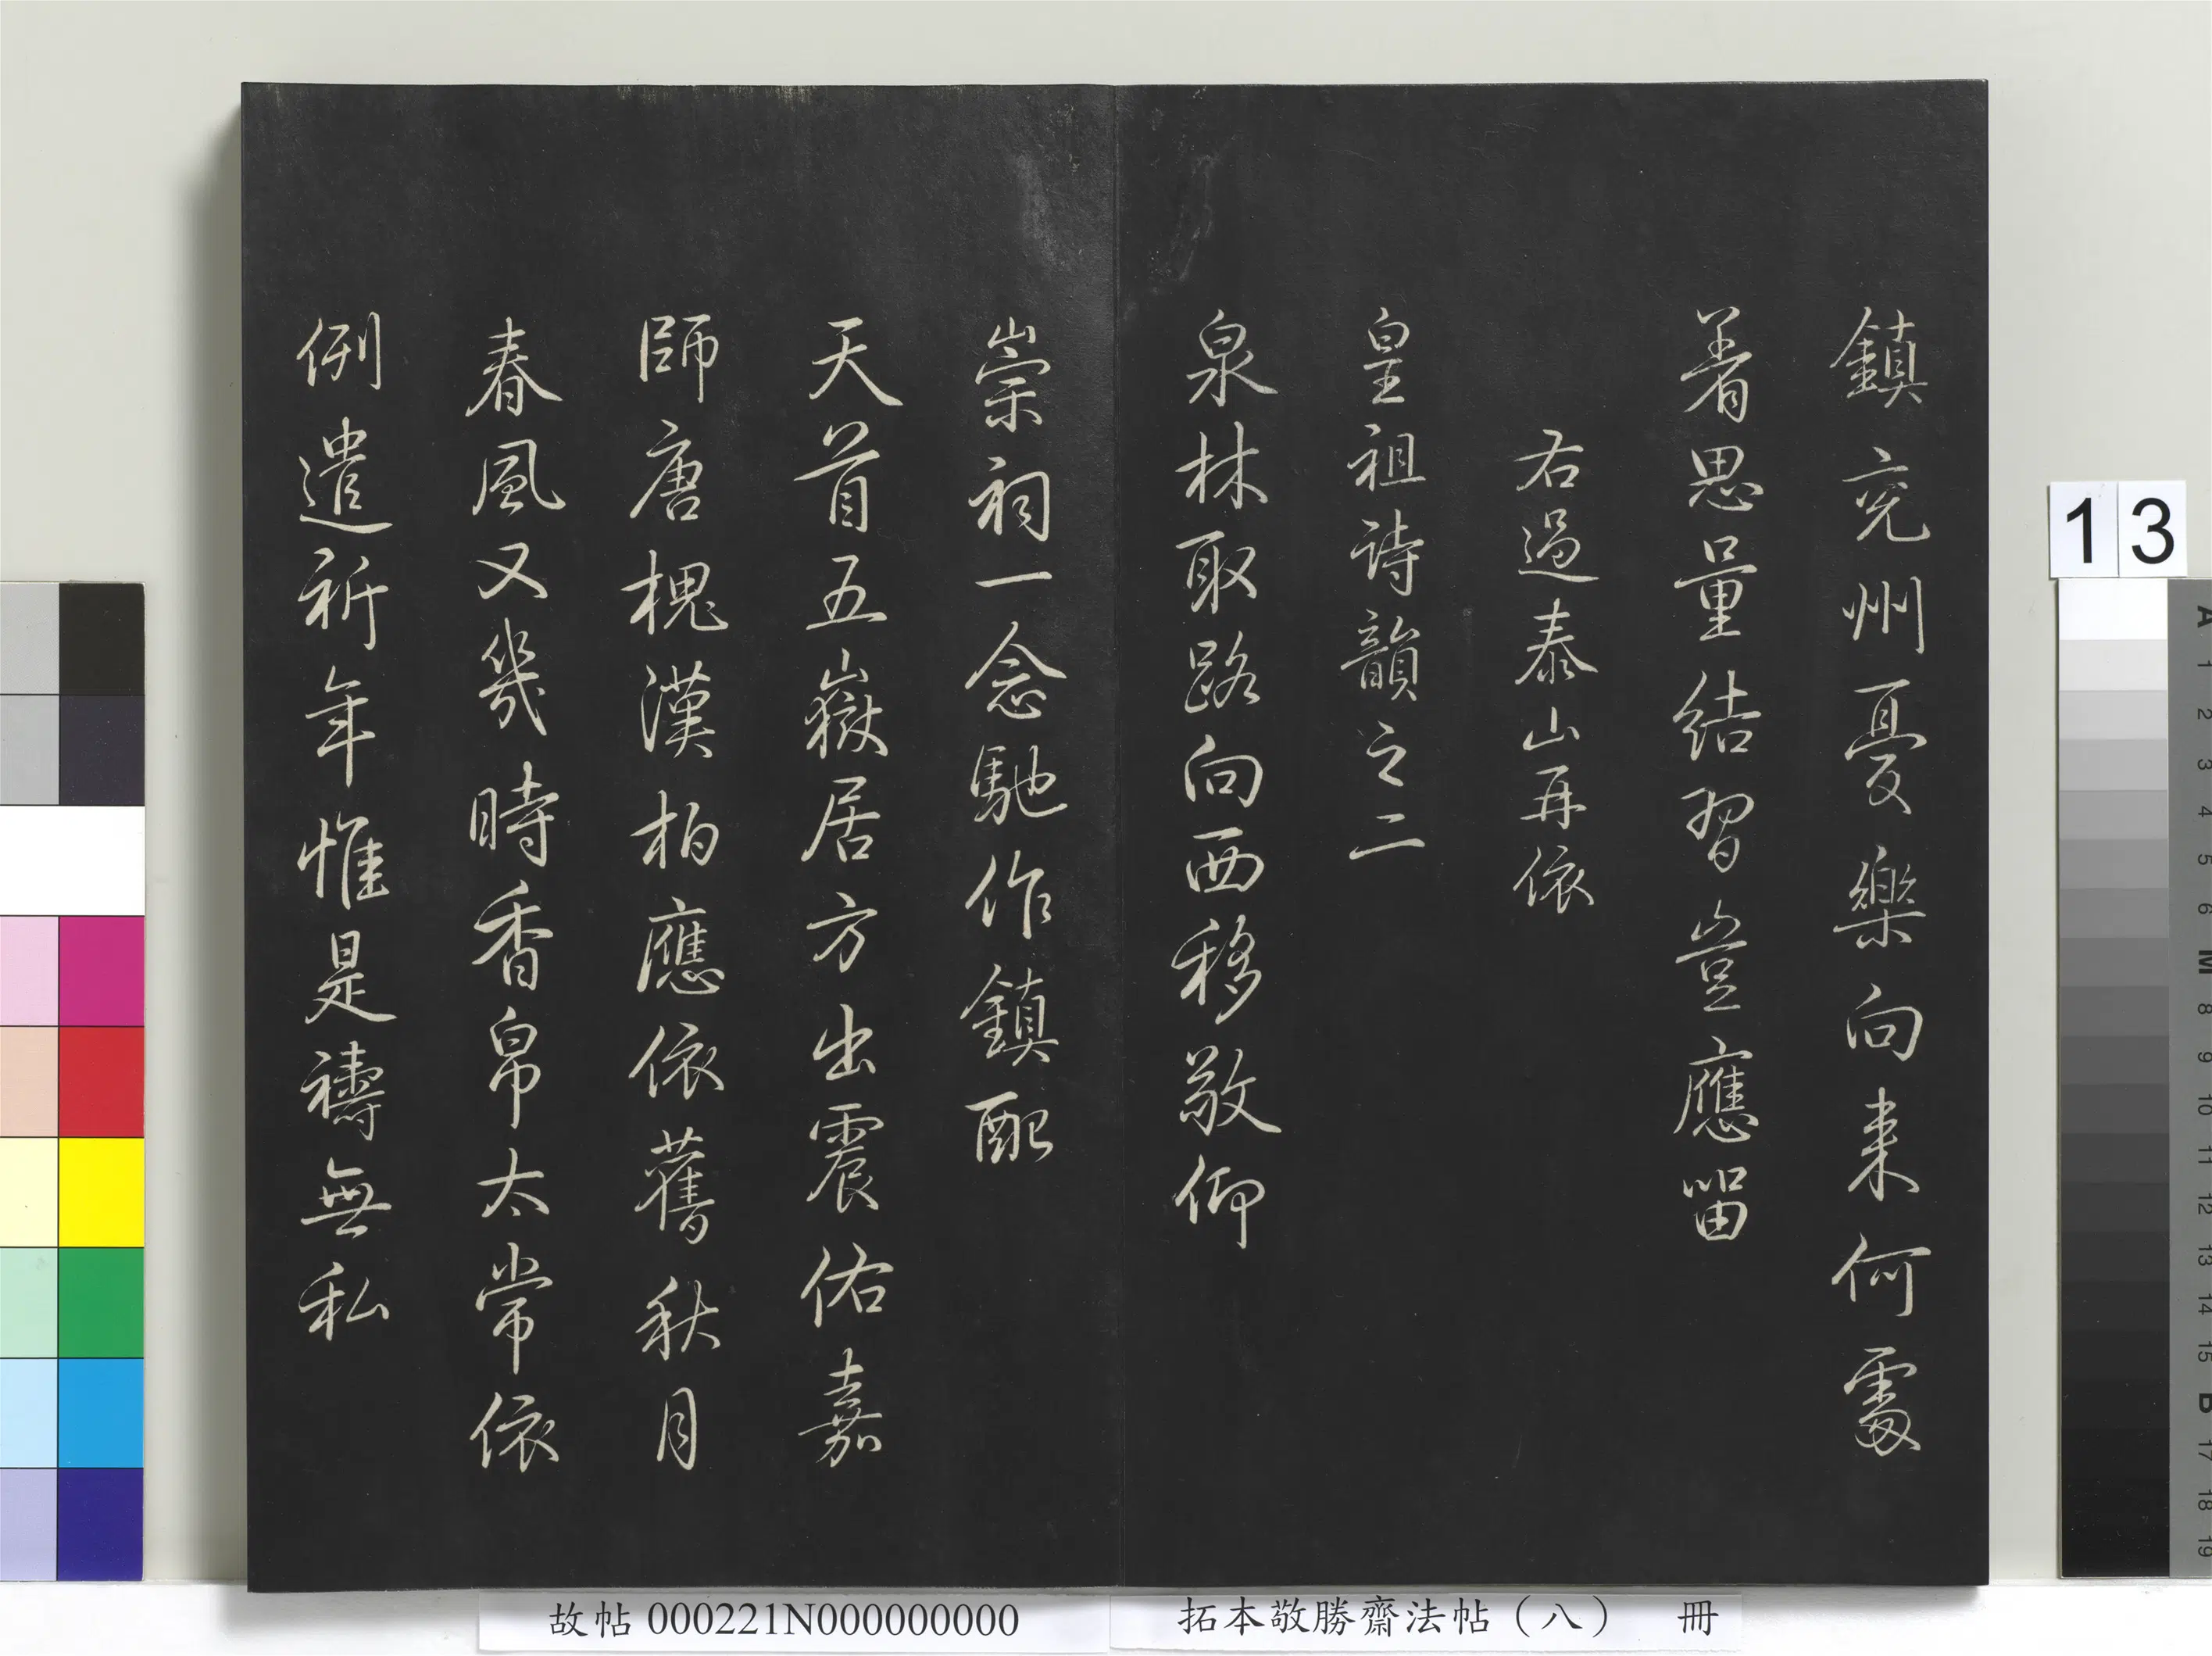 鎮兗州憂樂向来何處
著思量結習豈應留
右過泰山再依
皇祖詩韻之二
泉林取路向西移敬仰
崇祠一念馳作鎮配
天首五嶽居方出震佑嘉
師唐槐漢柏應依舊秋月
春風又幾時香帛太常依
例遣祈年惟是禱無私
故帖000221N000000000
拓本敬勝齋法帖（八） 冊
13
A 1 2 3 4 5 6 M 8 9 10 11 12 13 14 15 B 17 18 19